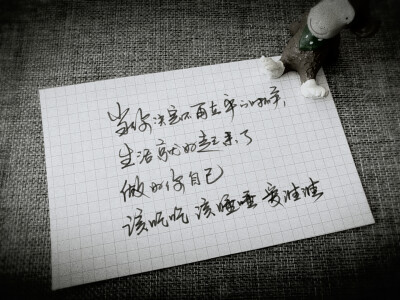 当你决定不再在乎的时候，
生活就好起来了
做好你自己
该吃吃 该睡睡 爱谁谁